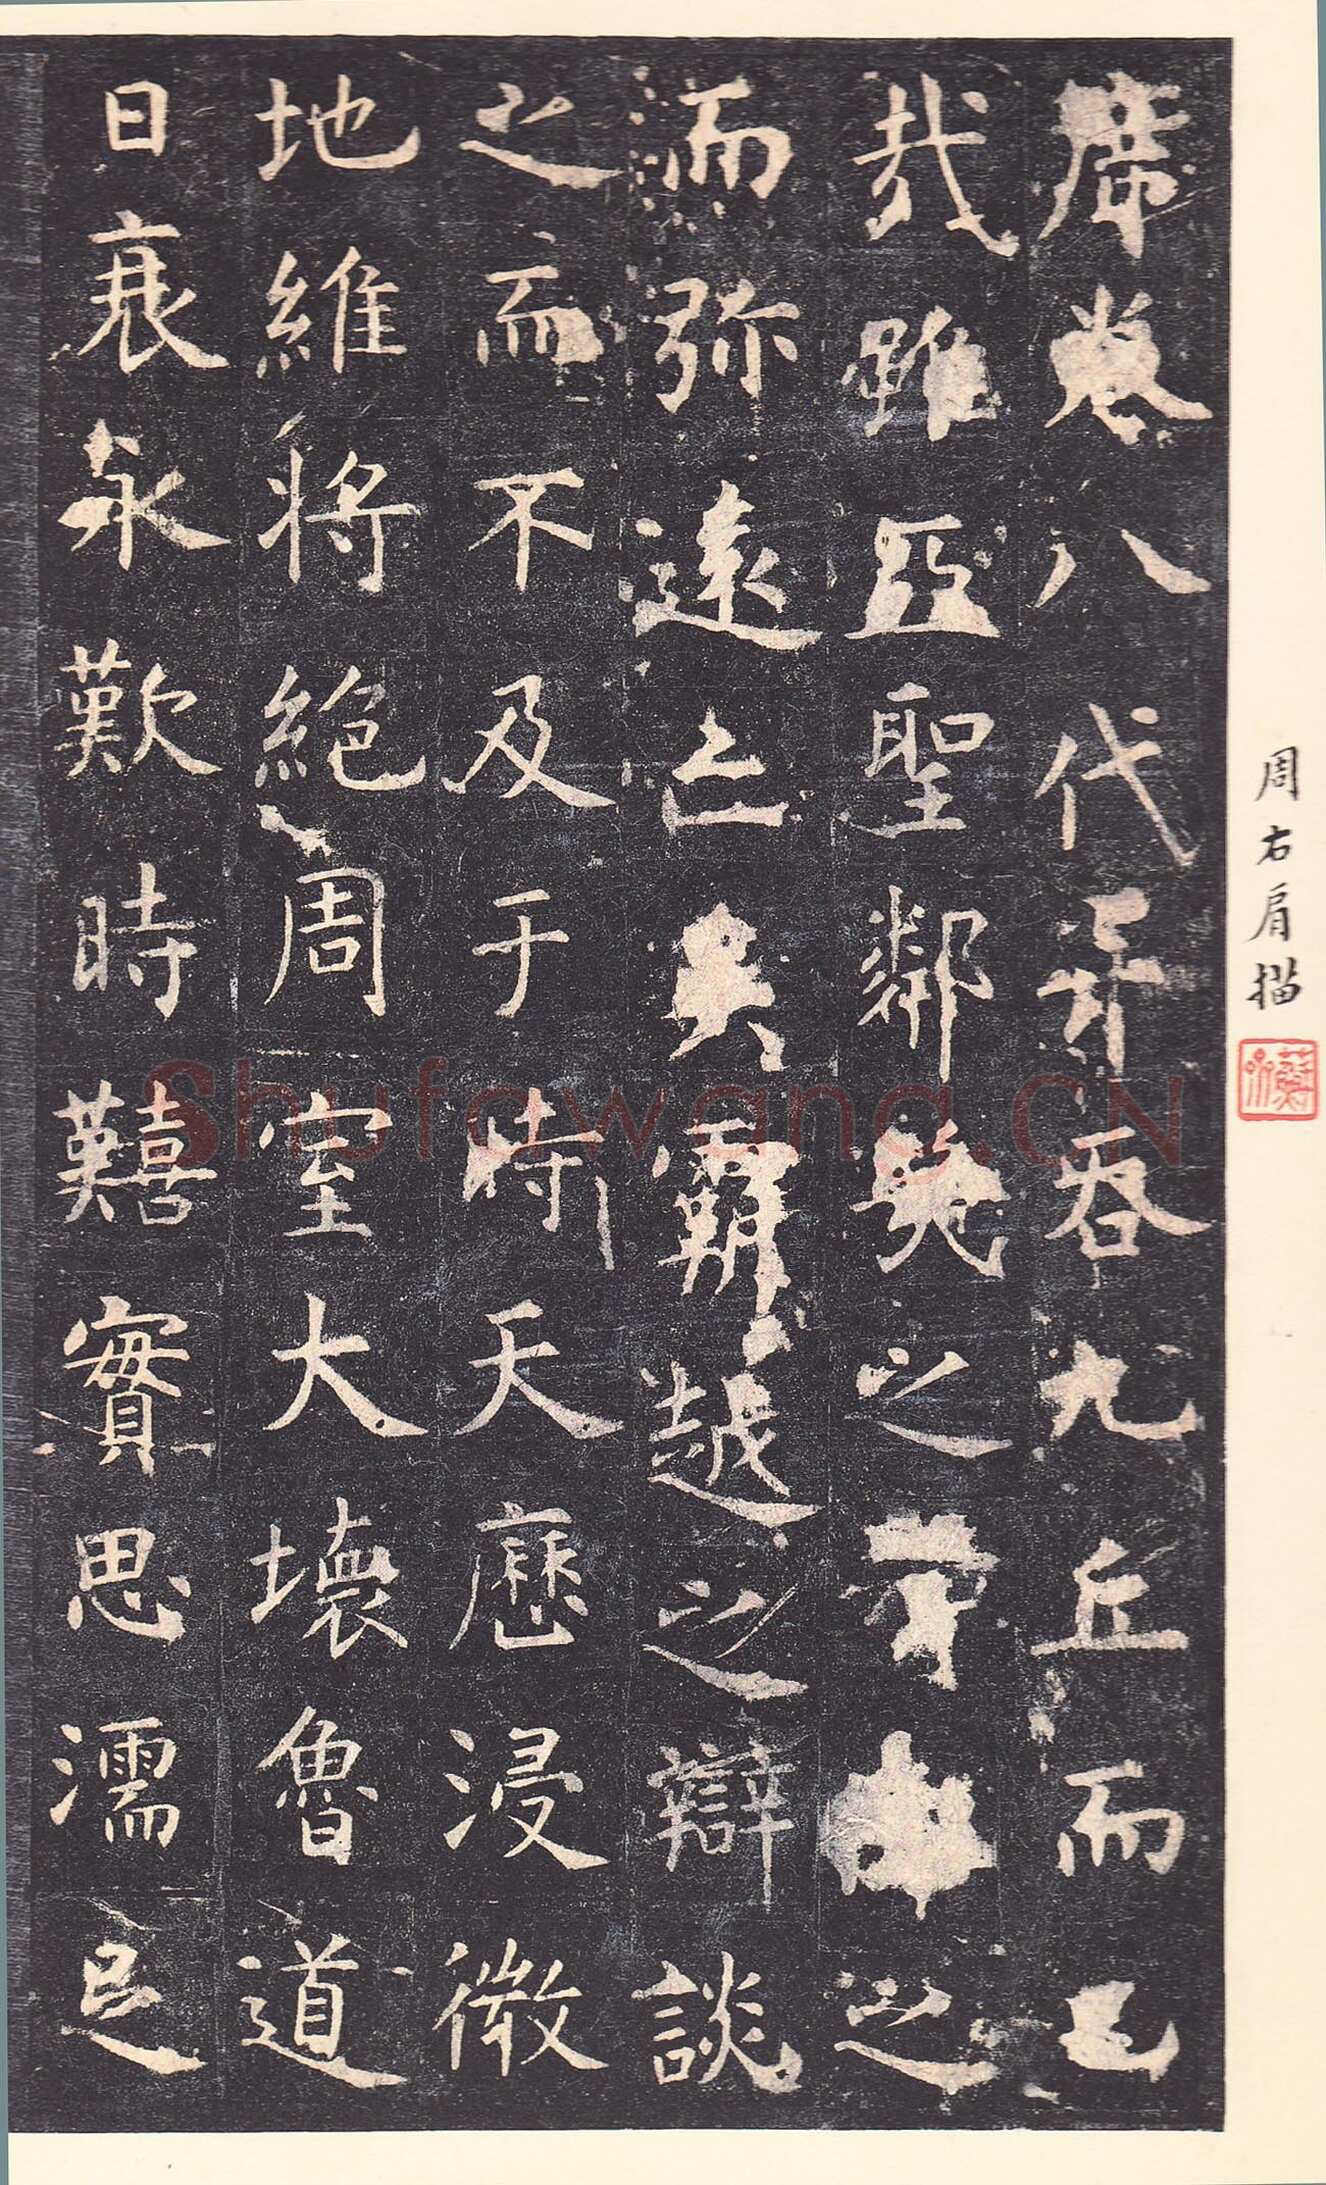 席卷八代并吞九丘而已
哉雖亞聖鄰幾之智仰之
而弥遠亡吳覇越之辯談
之而不及于時天歷浸微
地維將絕周室大壞魯道
日衰永歎時囏實思濡足
周右肩描
Shufawang.CN